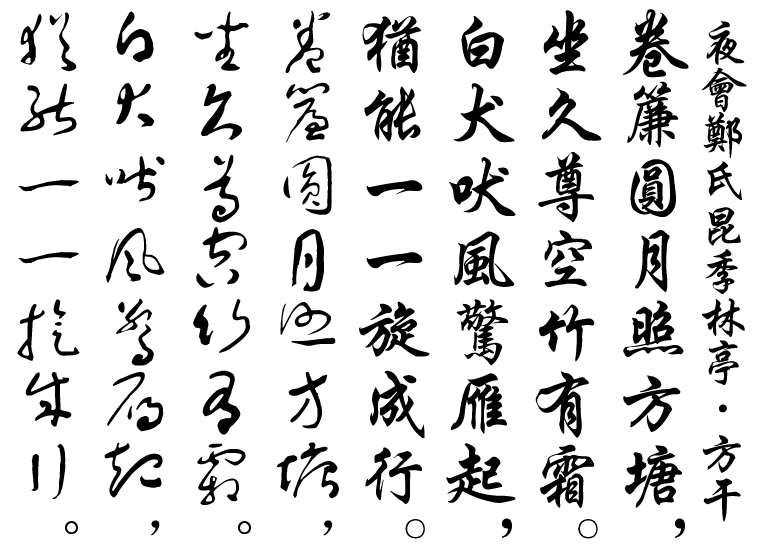 夜會鄭氏昆季林亭·方干
卷簾圓月照方塘，
坐久尊空竹有霜。
白犬吠風驚雁起，
猶能一一旋成行。
卷簾圓月照方塘，
坐久尊空竹有霜。
白犬吠風驚雁起，
猶能一一旋成行。